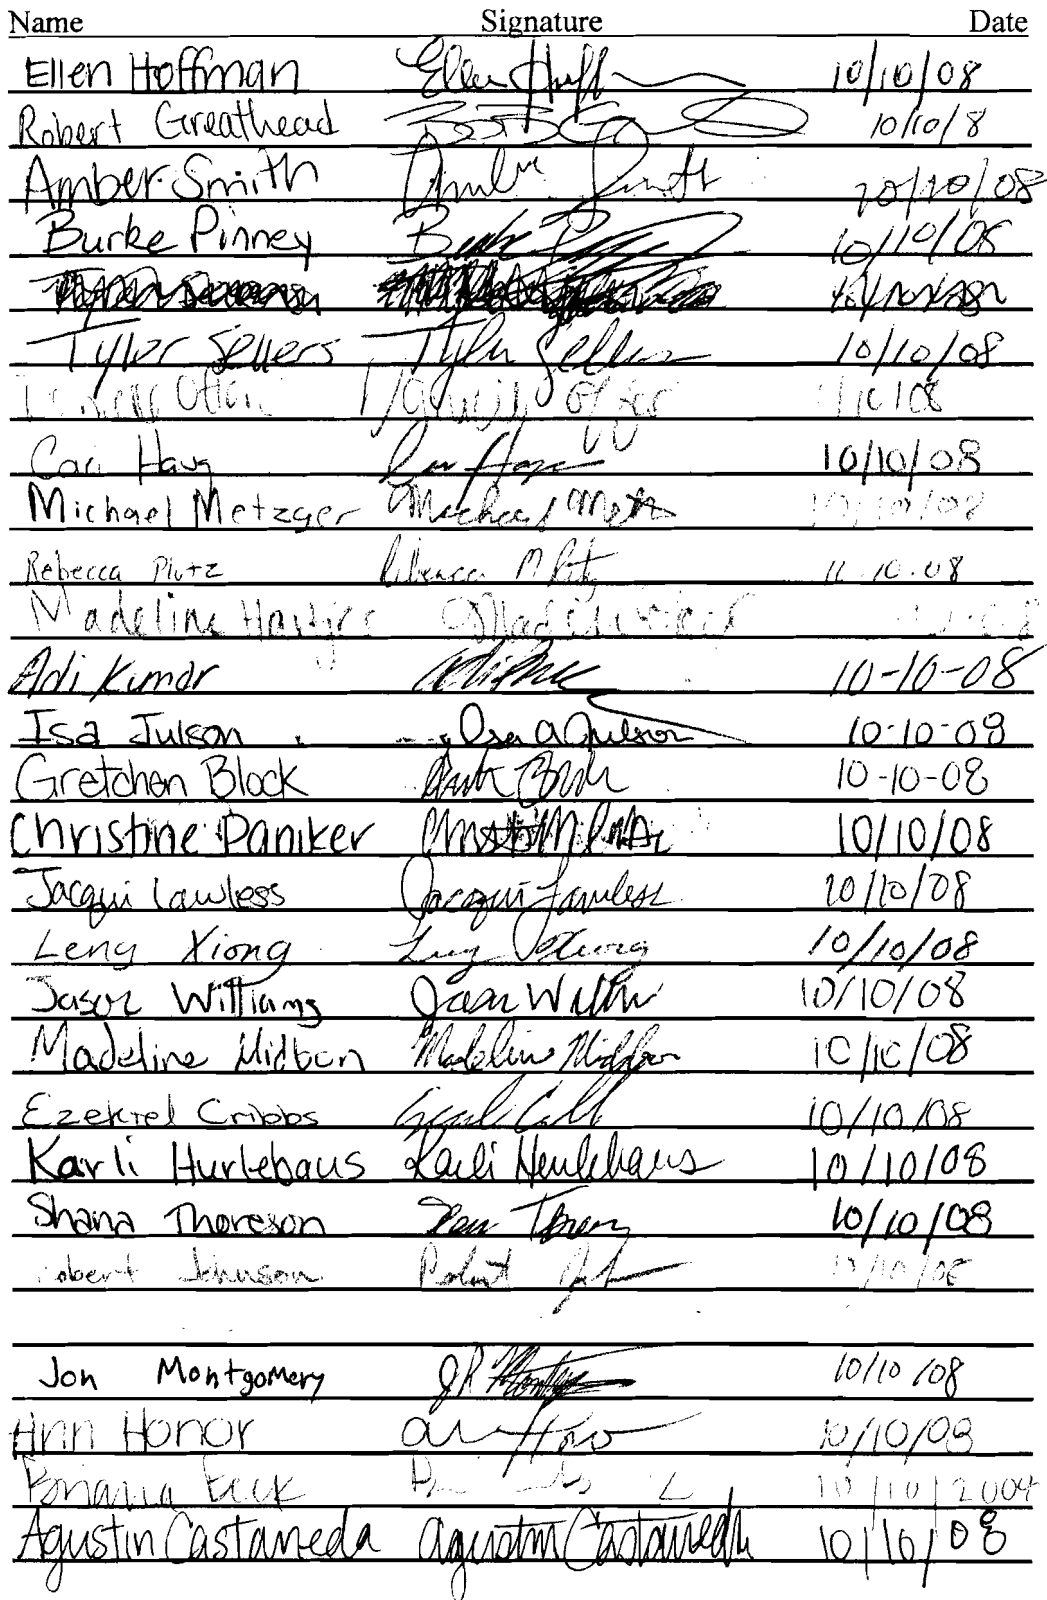 Name Signature Date
Ellen Hoffman Ellen Hoff 10/10/08
Robert Greathead 10/10/8
Amber Smith Amber Smith 10/10/08
Burke Pinney Burke 10/10/08
Tyler Sellers Tyler Sellers 10/10/08
/10/08
Cari Haug 10/10/08
Michael Metzger Michael Metz 10/10/08
Rebecca Plutz Rebecca 10.08
Madeline
Adi Kumar 10-10-08
Isa Julson Isa A Julson 10-10-08
Gretchen Block 10-10-08
Christine Paniker 10/10/08
Jacqui Lawless Jacqui Lawless 10/10/08
Leng Xiong Leng Xiong 10/10/08
Jason Williams Jason 10/10/08
Madeline Midbon Madeline Midbon 10/10/08
Ezekiel Cribbs 10/10/08
Karli Hurlebaus Karli Hurlebaus 10/10/08
Shana Thoreson 10/10/08
Robert Johnson Robert 10/10/08
Jon Montgomery 10/10/08
Ann Honor 10/10/08
Briana 10/10/2004
Agustin Castaneda Agustin Castaneda 10/10/08